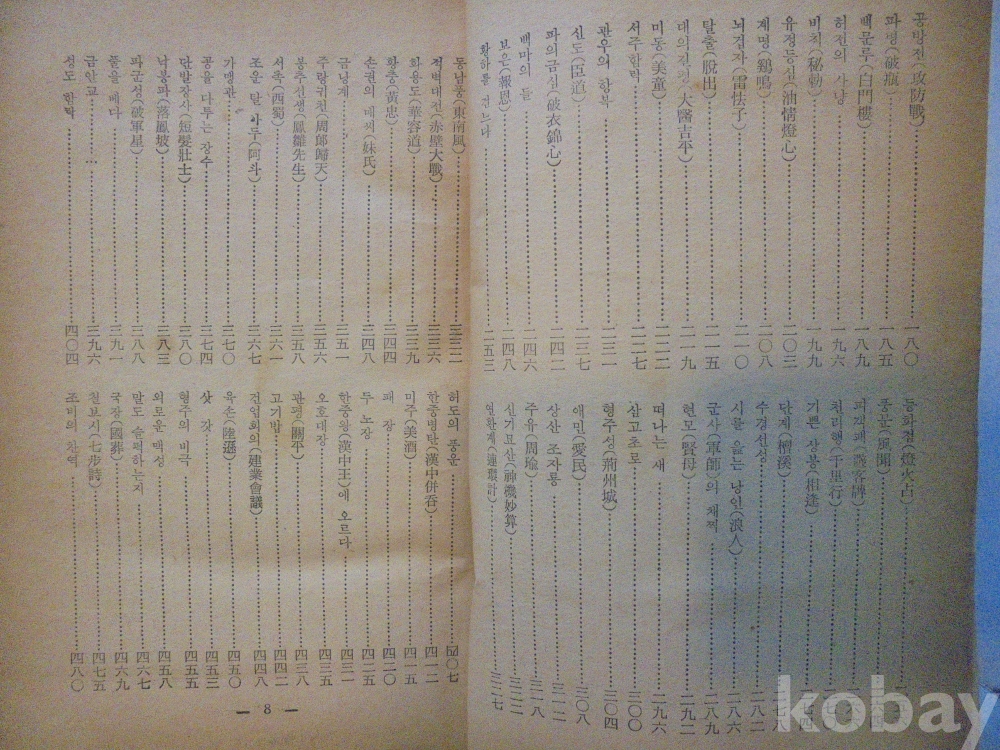 공방전(攻防戰)……一八〇
파병(破瓶)……一八五
백문루(白門樓)……一八九
허전의 사냥……一九六
비칙(秘勅)……一九九
유정등심(油情燈心)……二〇三
계명(鷄鳴)……二〇八
뇌겁자(雷怯子)……二一〇
탈출(脱出)……二一五
대의길평(大醫吉平)……二一九
미동(美童)……二二二
서주함락……二二七
관우의 항복……二三一
신도(臣道)……二三七
파의금심(破衣錦心)……二四二
백마의 들……二四六
보은(報恩)……二四八
황하를 건느다……二五三
등화점(燈火占)
풍문(風聞)
천리행(千里行)
기쁜 상봉(相逢)
단계(檀溪)
수경선생……二八二
시를 읊는 낭인(浪人)……二八六
군사(軍師)의 채찍……二八九
현모(賢母)……二九二
떠나는 새……二九六
삼고초로……三〇〇
형주성(荊州城)……三〇四
애민(愛民)……三〇八
상산 조자룡……三一二
주유(周瑜)……三一八
신기묘산(神機妙算)……三二二
연환계(連環計)……三二七
동남풍(東南風)……三三二
적벽대전(赤壁大戰)……三三六
화용도(華容道)……三三九
황충(黃忠)……三四四
손권의 매씨(妹氏)……三四八
금낭계……三五一
주랑귀천(周郎歸天)……三五六
봉추선생(鳳雛先生)……三五八
서촉(西蜀)……三六二
조운 말 아두(阿斗)……三六七
가맹관……三七〇
공을 다투는 장수……三七四
단발장사(短髮壯士)……三八〇
낙봉파(落鳳坡)……三八三
파군성(破軍星)……三八八
풀을 베다……三九一
금안교……三九六
성도 함락……四〇四
허도의 풍운……四〇七
한중병탄(漢中併呑)……四一二
미주(美酒)……四一五
패 장……四二〇
두 노장……四二五
한중왕(漢中王)에 오르다……四三一
오호대장……四三五
관평(關平)……四三八
고기밥……四四二
건업회의(建業會議)……四四八
육손(陸遜)……四五〇
삿 갓……四五三
형주의 비극……四五五
외로운 맥성……四五八
말도 슬퍼하는지……四六七
국장(國葬)……四六九
칠보시(七步詩)……四七五
조비의 찬역……四八〇
— 8 —
kobay